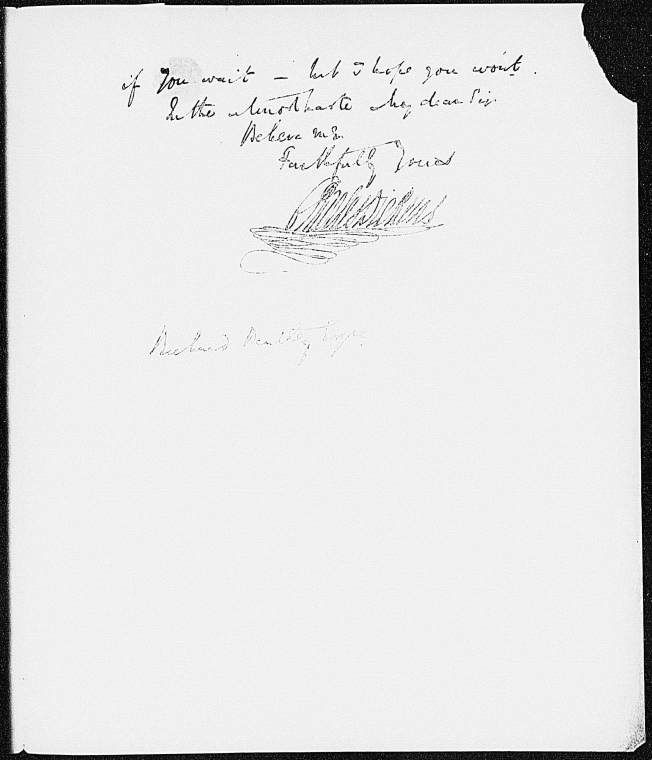 if you wait – but I hope you won't.
In the utmost haste My dear Sir
Believe me
Faithfully Yours
Charles Dickens
Richard Bentley Esqre.